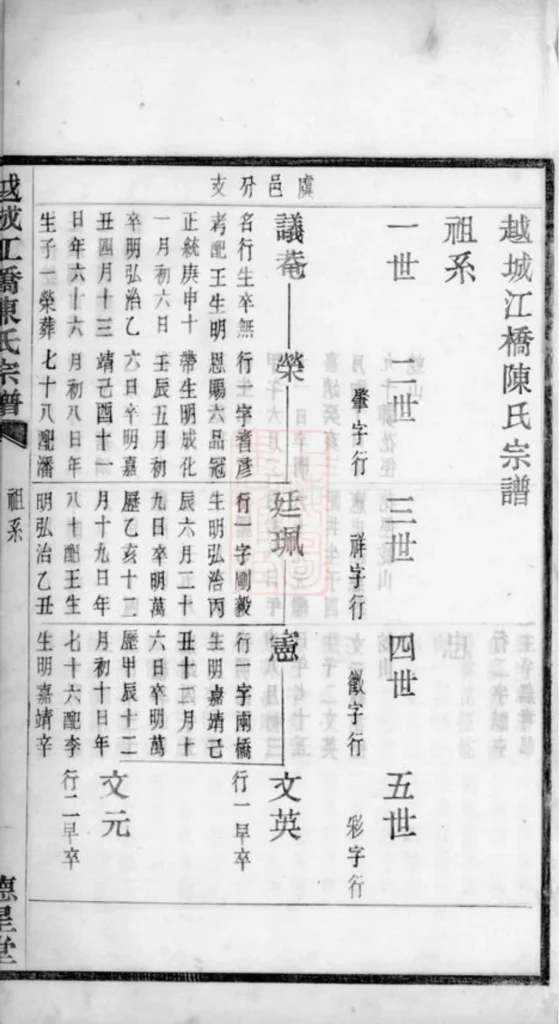 越城江橋陳氏宗譜
祖系
虞邑分支
一世
二世
肇字行
三世
祥字行
四世
徽字行
五世
彩字行
議菴
名行生卒無
考配王生明
正統庚申十
一月初六日
卒明弘治乙
丑四月十三
日年六十六
生子一榮葬
榮
行一字耆彥
恩賜六品冠
帶生明成化
壬辰五月初
六日卒明嘉
靖己酉十一
月初八日年
七十八配潘
廷珮
行一字剛毅
生明弘治丙
辰六月二十
九日卒明萬
曆乙亥十二
月十九日年
八十配王生
明弘治乙丑
憲
行一字南橋
生明嘉靖己
丑十二月十
六日卒明萬
曆甲辰十二
月初十日年
七十六配李
生明嘉靖辛
文英
行一早卒
文元
行二早卒
越城江橋陳氏宗譜
祖系
德星堂